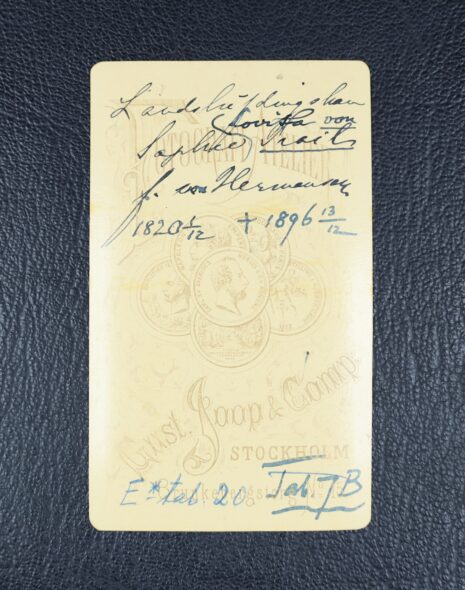 Landshöfdingskan
Lovisa von
Sophie Troili
f. von Hermansson
1820 1/12 + 1896 13/12
FOTOGRAFI ATELIER
Gust. Joop & Comp.
STOCKHOLM
E* tab. 20. Tab 7 B